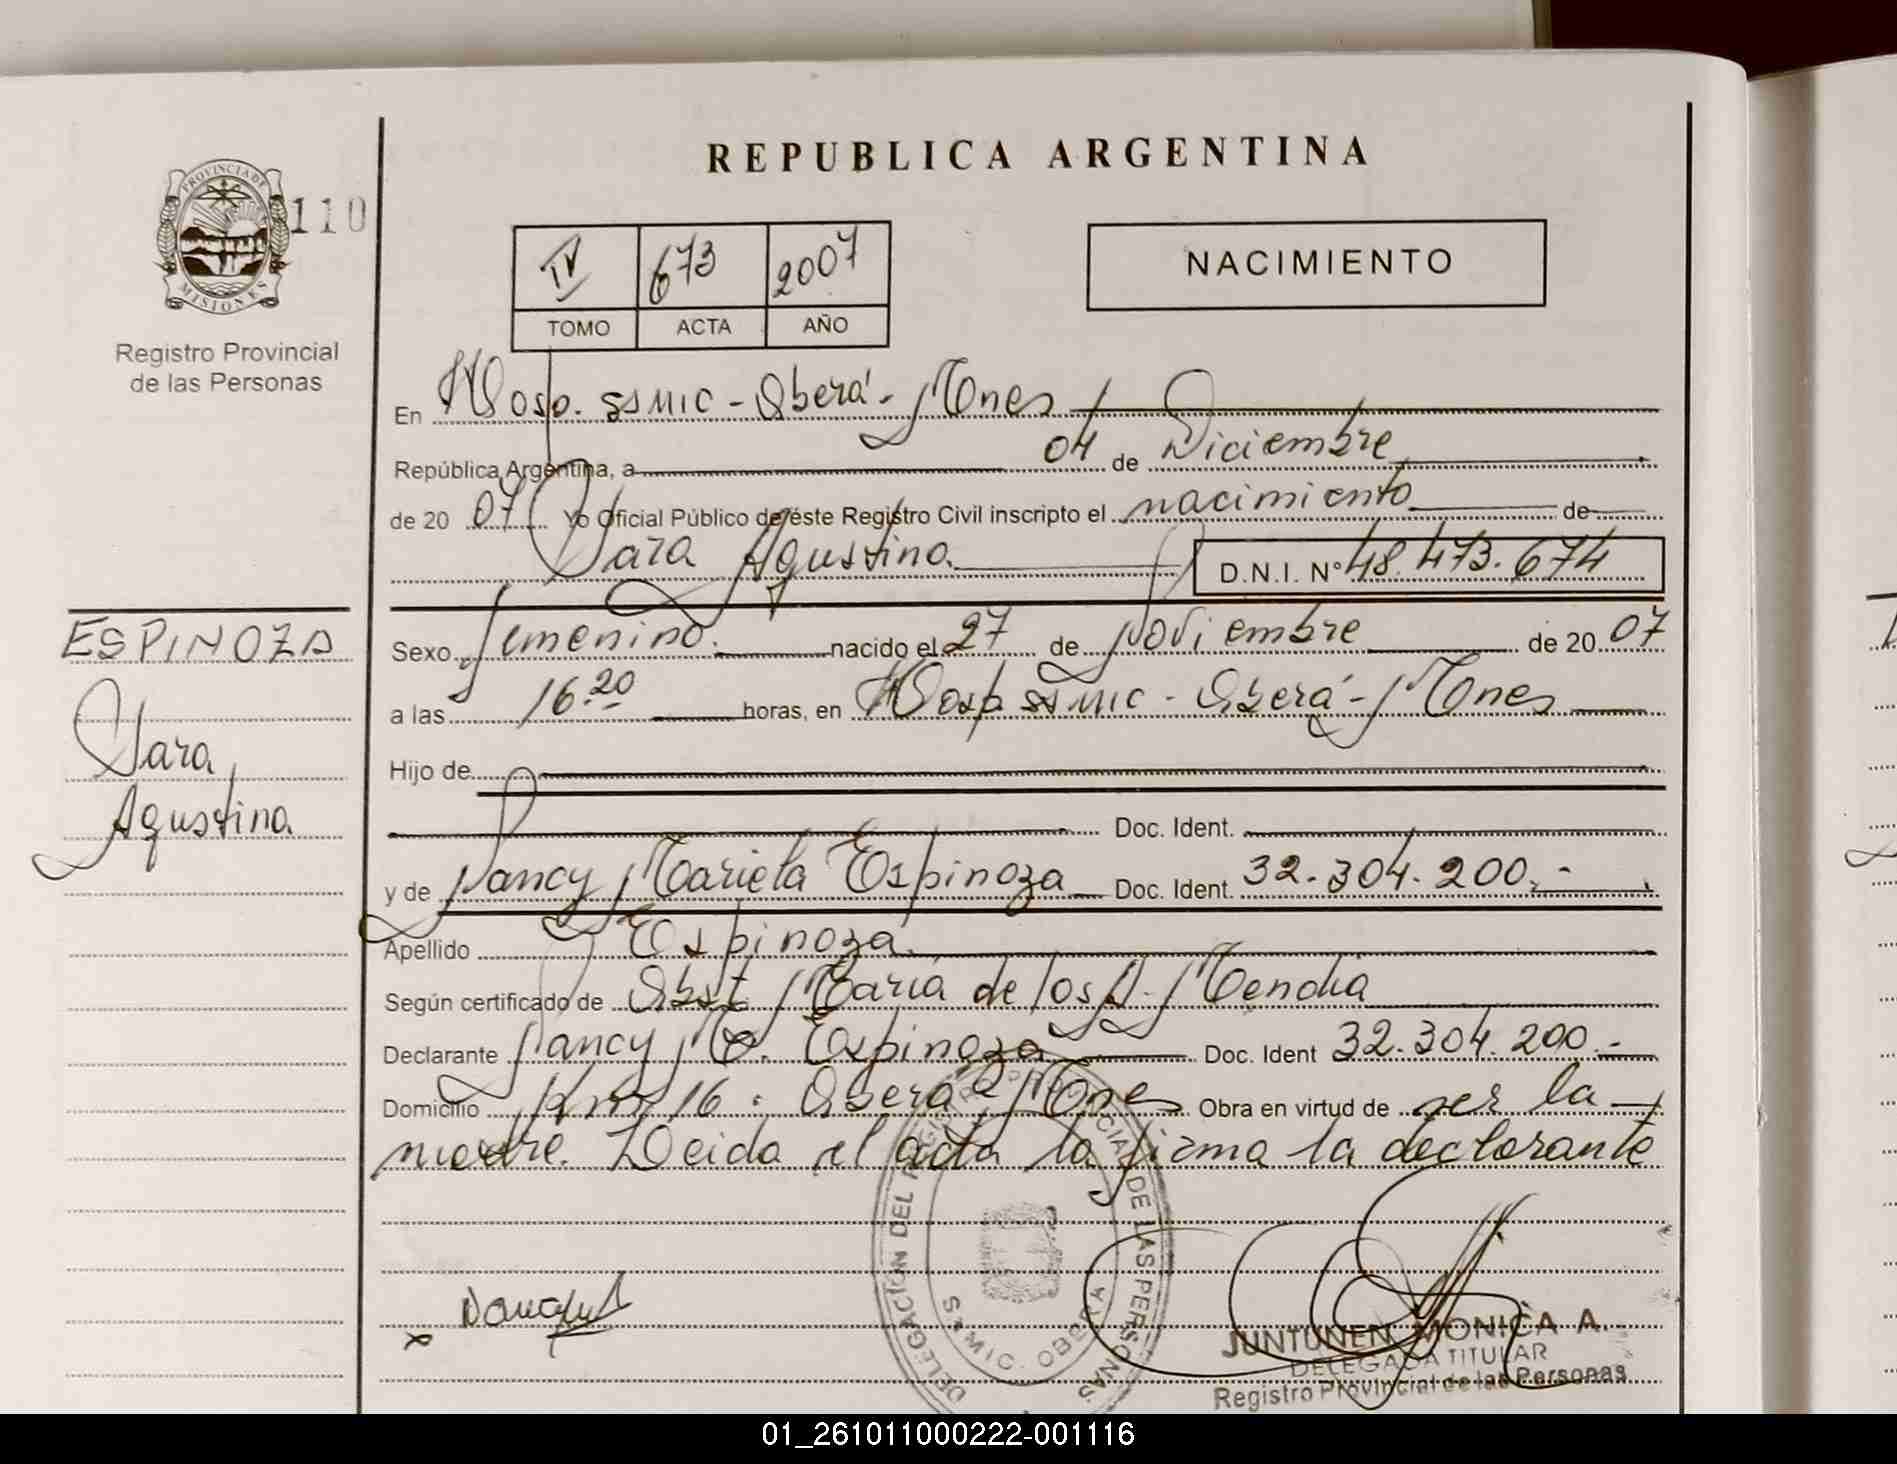 REPUBLICA ARGENTINA
PROVINCIA DE
MISIONES
110
Registro Provincial
de las Personas
IV 673 2007
TOMO ACTA AÑO
NACIMIENTO
En Hosp. SSMIC - Oberá - Mnes
República Argentina, a 04 de Diciembre
de 20 07 Yo Oficial Público de éste Registro Civil inscripto el nacimiento de
Sara Agustina. D.N.I. Nº 48.473.674
ESPINOZA
Sara
Agustina
Sexo femenino. nacido el 27 de Noviembre de 20 07
a las 16.20 horas, en Hosp SSMIC - Oberá - Mnes
Hijo de
Doc. Ident.
y de Nancy Mariela Espinoza Doc. Ident. 32.304.200.-
Apellido Espinoza.
Según certificado de Obst María de los A.
Declarante Nancy M. Espinoza Doc. Ident 32.304.200.-
Domicilio km 16. Oberá - Mnes Obra en virtud de ser la
madre. Leida el acta la firma la declarante
DELEGACIÓN DEL REGISTRO PROVINCIAL DE LAS PERSONAS
SAMIC. OBERA
JUNTUNEN MONICA A.
DELEGADA TITULAR
Registro Provincial de las Personas
01_261011000222-001116